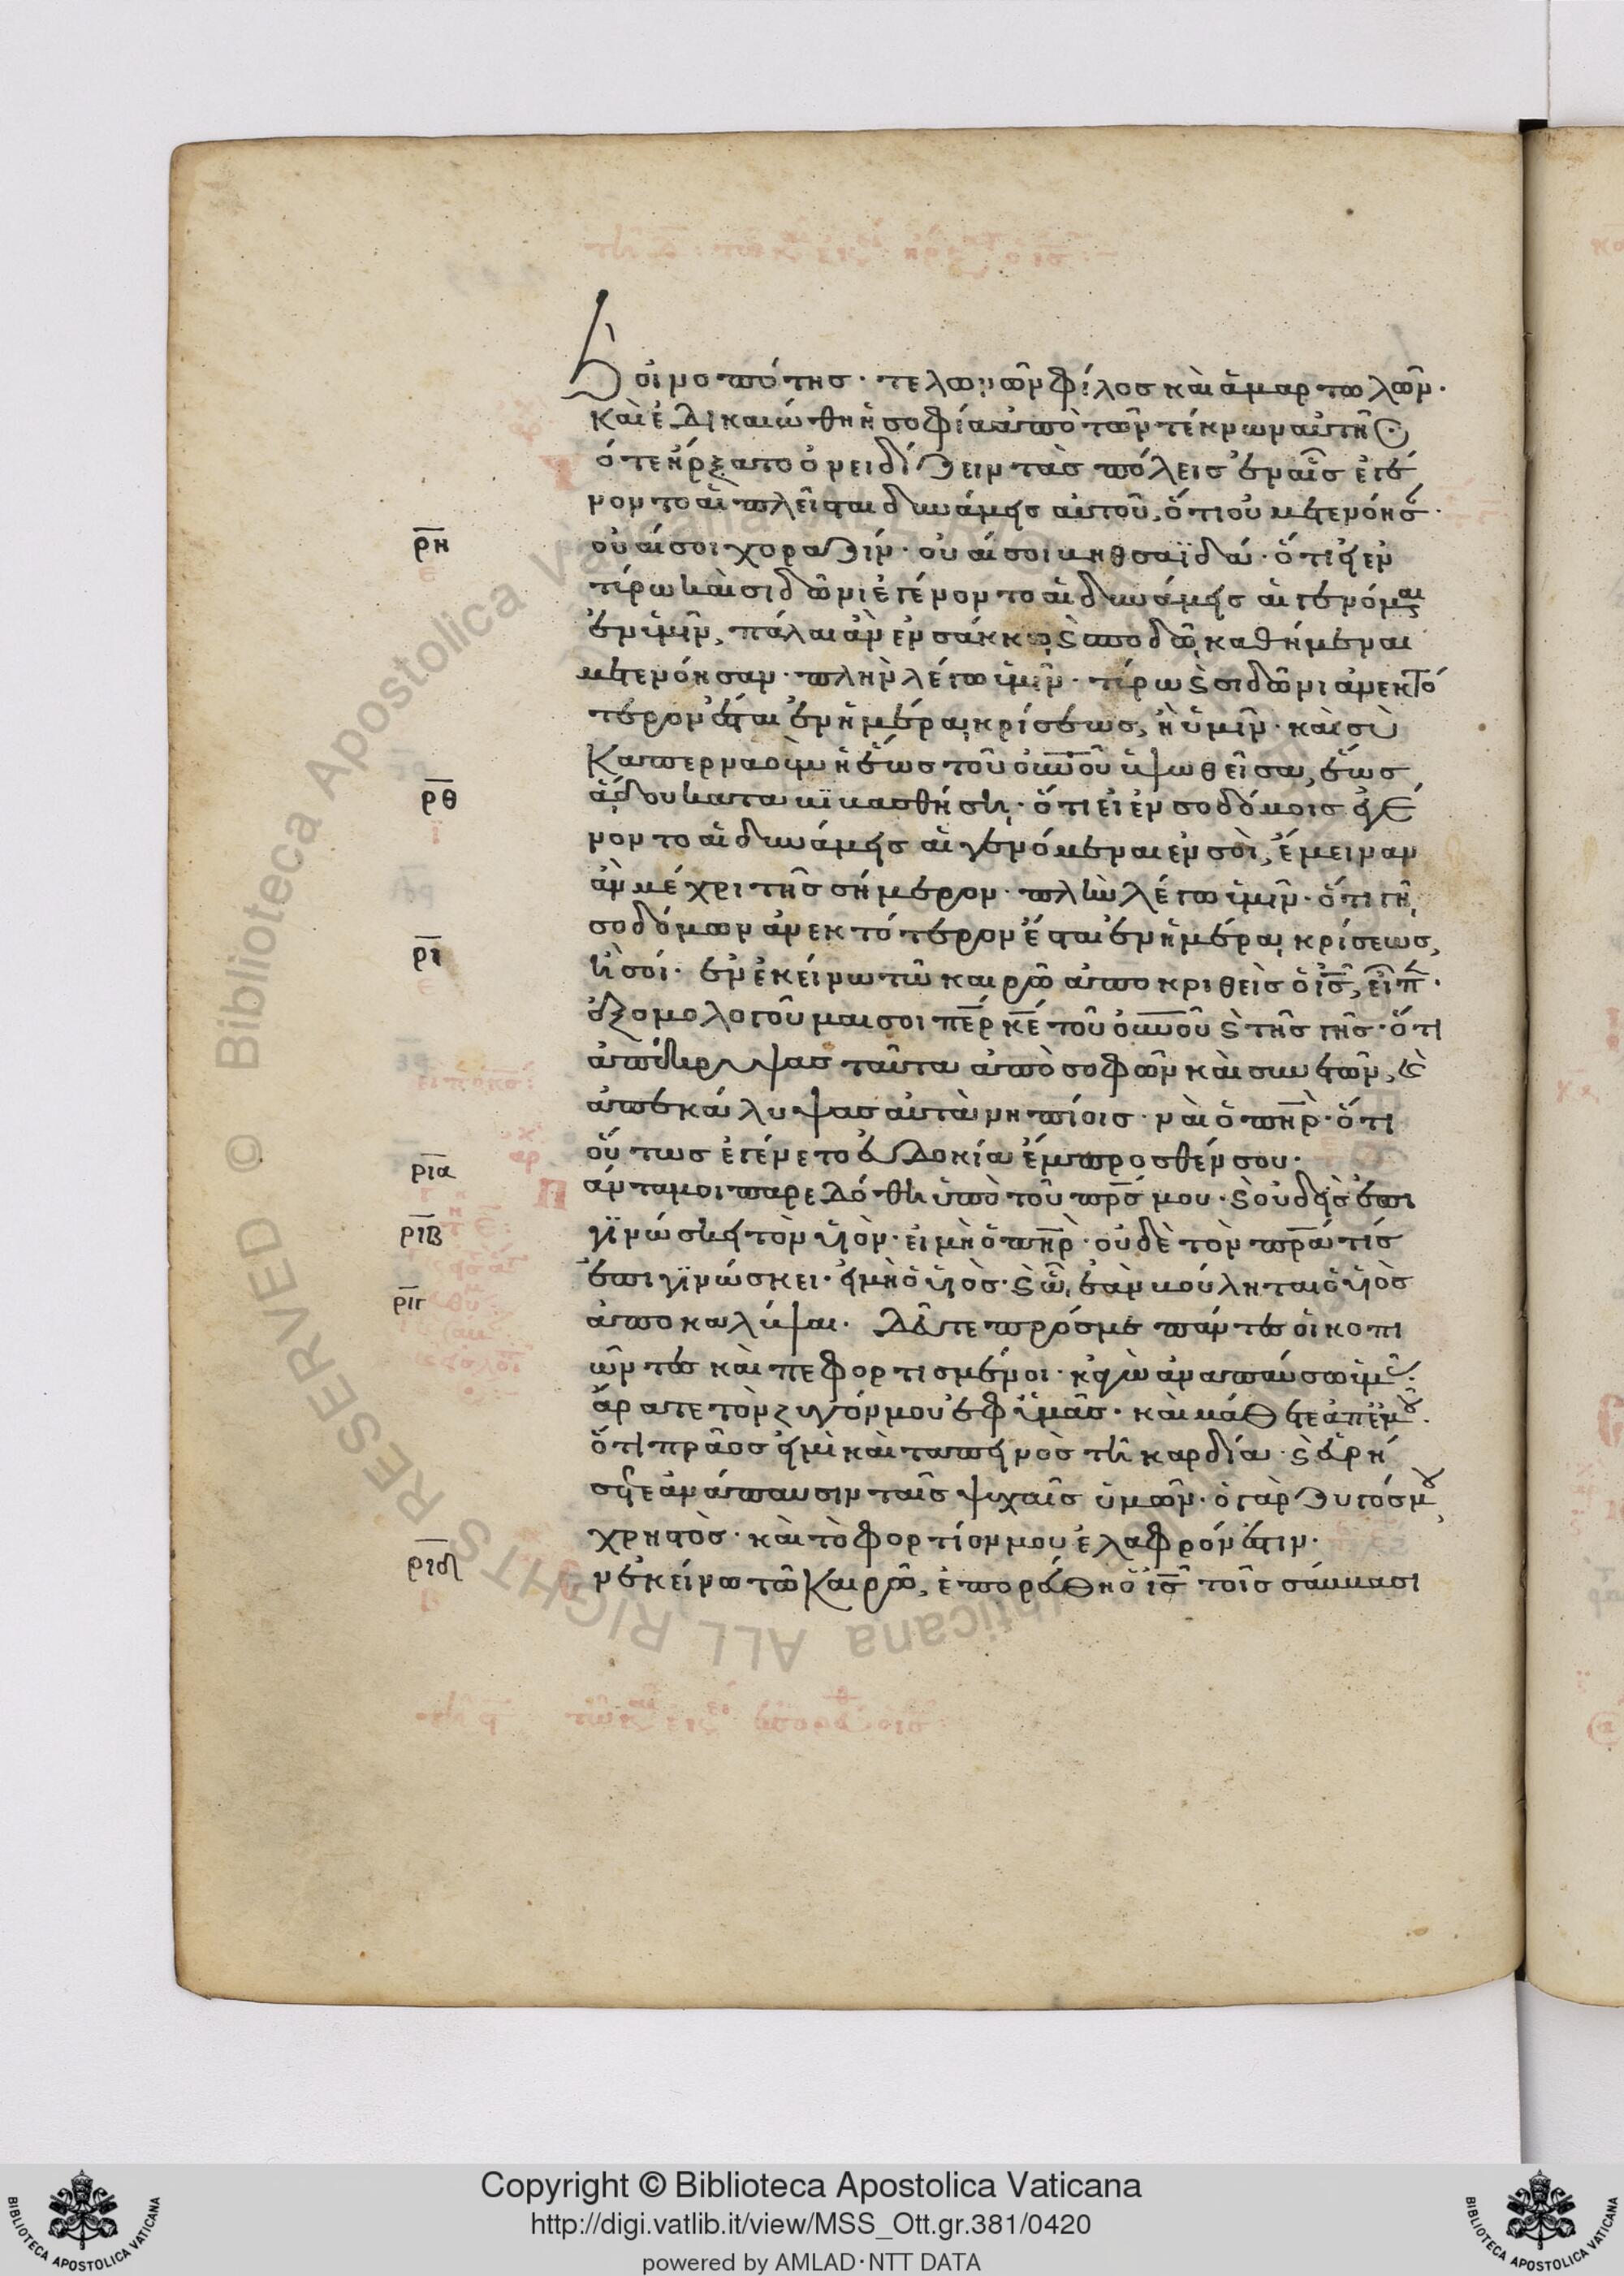 καὶ οἰνοπότης· τελωνῶν φίλος καὶ ἁμαρτωλῶν·
καὶ ἐδικαιώθη ἡ σοφία ἀπὸ τῶν τέκνων αὐτῆς·
ότε ἤρξατο ὀνειδίζειν τὰς πόλεις ἐν αἷς ἐγέ
νοντο αἱ πλεῖσται δυνάμεις αὐτοῦ, ὅτι οὐ μετενόησ·
ρη
οὐαί σοι χοραζίν· οὐαί σοι βηθσαϊδά· ὅτι εἰ ἐν
τύρω καὶ σιδῶνι ἐγένοντο αἱ δυνάμεις αἱ γενόμεναι
ἐν ὑμῖν, πάλαι ἂν ἐν σάκκω, καὶ σποδῶ, καθήμεναι
μετενόησαν· πλὴν λέγω ὑμῖν· τύρω καὶ σιδῶνι ἀνεκτό
τερον ἔσται ἐν ἡμέρα κρίσεως, ἢ ὑμῖν· καὶ σὺ
ρθ
Καπερναοὺμ ἡ ἕως τοῦ οὐνοῦ ὑψωθεῖσα, ἕως
ἅδου καταβιβασθήση· ὅτι εἰ ἐν σοδόμοις ἐγέ
νοντο αἱ δυνάμεις αἱ γενόμεναι ἐν σοὶ, ἔμειναν
ἂν μέχρι τῆς σήμερον· πλὴν λέγω ὑμῖν· ὅτι γῆ
σοδόμων ἀνεκτότερον ἔσται ἐν ἡμέρα κρίσεως,
ρι
ἢ σοί· ἐν ἐκείνω τῶ καιρῶ ἀποκριθεὶς ὁ ἰς, εἶπ·
ἐξομολογοῦμαι σοι περ κε τοῦ οὐνοῦ καὶ τῆς γῆς· ὅτι
ἀπέκρυψας ταῦτα ἀπὸ σοφῶν καὶ συνετῶν, καὶ
ἀπεκάλυψας αὐτὰ νηπίοις· ναὶ ὁ πηρ· ὅτι
οὕτως ἐγένετο εὐδοκία ἔμπροσθέν σου·
ρια
άντα μοι παρεδόθη ὑπὸ τοῦ πρς μου· καὶ οὐδεὶς ἐπι
ριβ
γινώσκει τὸν υἱὸν· εἰ μὴ ὁ πηρ· οὐδὲ τὸν πρα τίς
ἐπιγινώσκει· εἰ μὴ ὁ υἱὸς· καὶ ὧ, ἐὰν βούληται ὁ υἱὸς
ριγ
ἀποκαλύψαι· Δεῦτε πρός με πάντες οἱ κοπι
ῶντες καὶ πεφορτισμένοι· κἀγὼ ἀναπαύσω ὑμᾶς·
άρατε τὸν ζυγόν μου ἐφ ὑμᾶς· καὶ μάθετε ἀπ ἐμοῦ·
ὅτι πρᾶος εἰμὶ καὶ ταπεινὸς τῆ καρδία· καὶ εὑρή
σετε ἀνάπαυσιν ταῖς ψυχαῖς ὑμῶν· ὁ γὰρ ζυγός μου
χρηστὸς· καὶ τὸ φορτίον μου ἐλαφρόν ἐστιν·
ριδ
ν ἐκείνω τῶ Καιρῶ, ἐπορεύθη ὁ ἰς τοῖς σάββασι
Copyright © Biblioteca Apostolica Vaticana
http://digi.vatlib.it/view/MSS_Ott.gr.381/0420
powered by AMLAD·NTT DATA
BIBLIOTECA APOSTOLICA VATICANA
BIBLIOTECA APOSTOLICA VATICANA
© Biblioteca Apostolica Vaticana ALL RIGHTS RESERVED